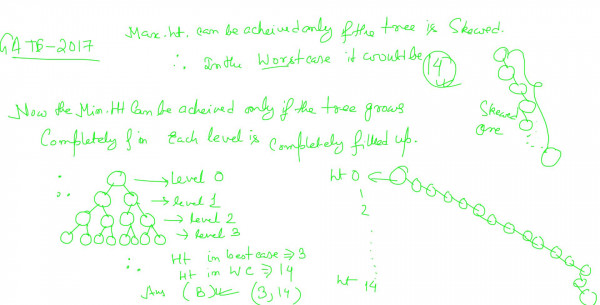 GATE-2017
Max. ht. can be acheived only if the tree is Skewed.
∴ In the Worst case it would be 14
Skewed
one
Now the Min. Ht can be acheived only if the tree grows
Completely & in Each level is completely filled up.
∴
→ Level 0
→ Level 1
→ Level 2
→ Level 3
ht 0
1
2
ht 14
Ht in best case ⇒ 3
∴ Ht in WC ⇒ 14
Ans (B) (3,14)